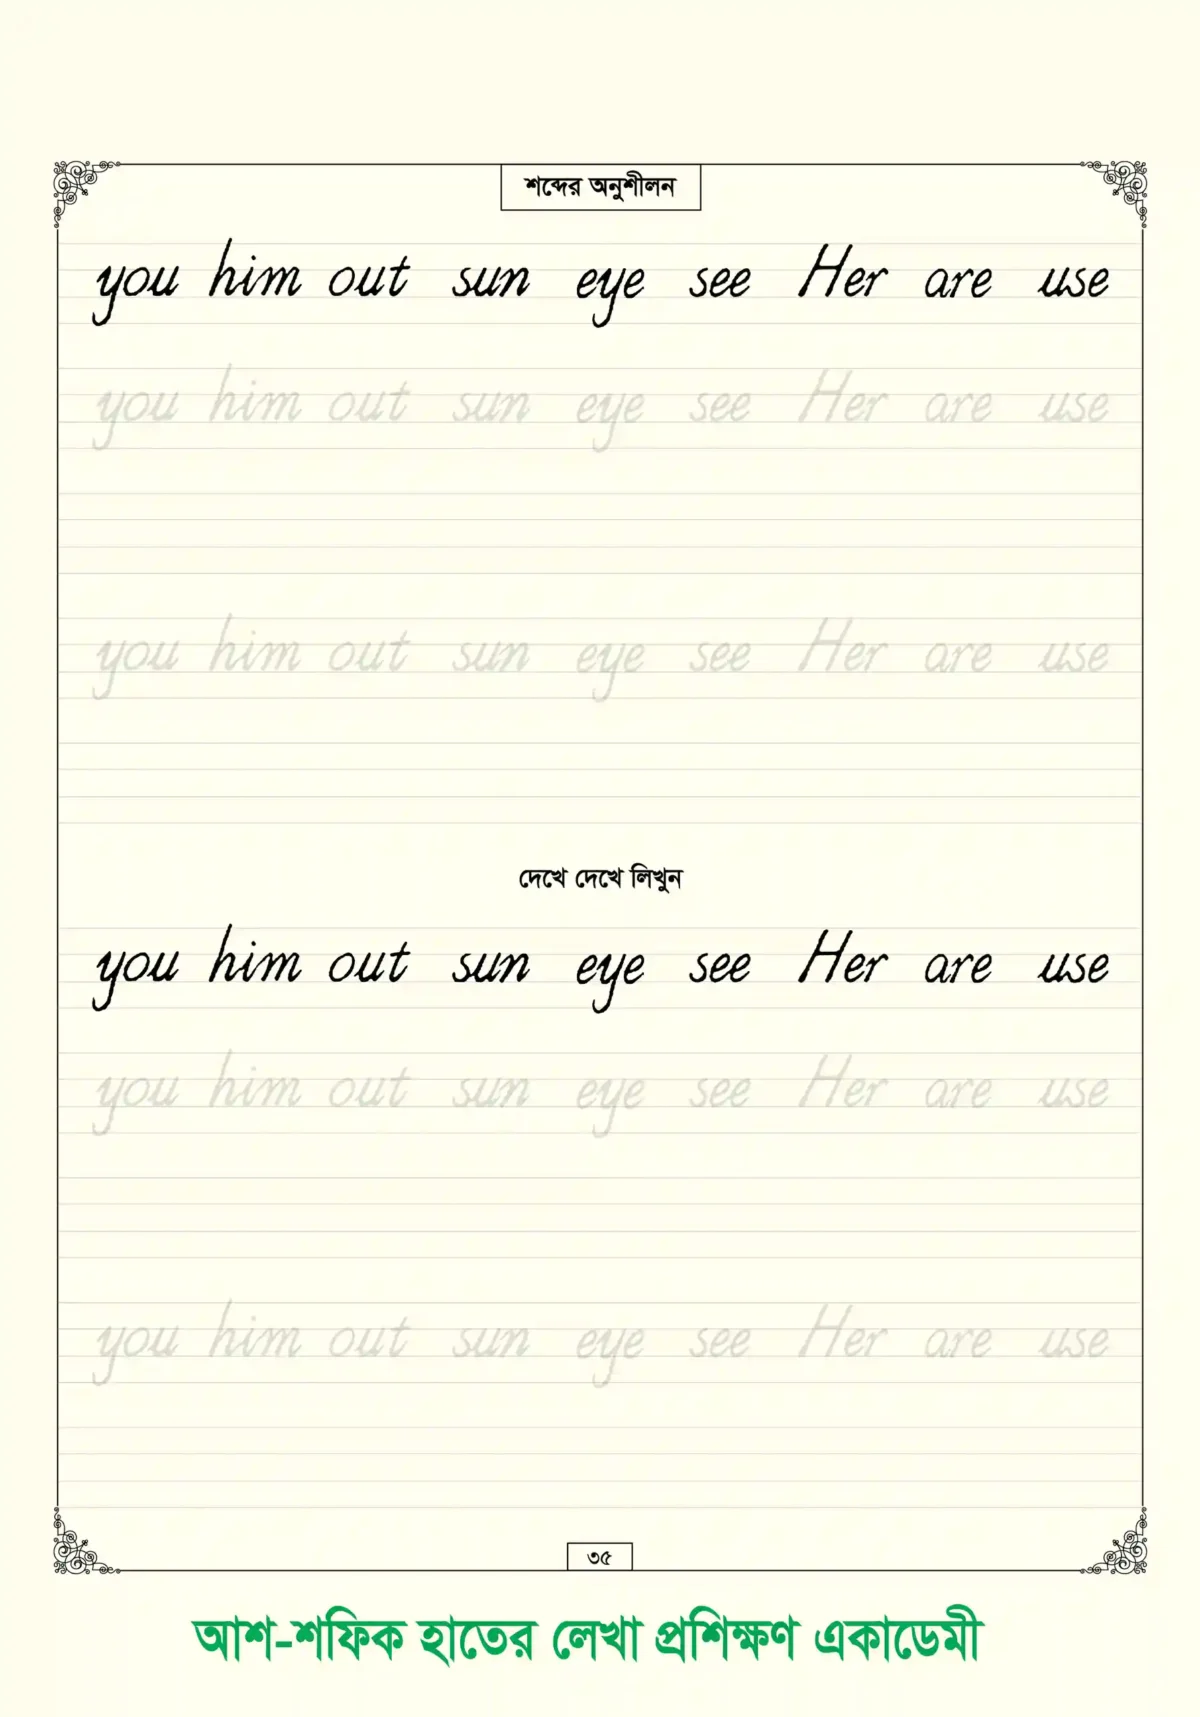 শব্দের অনুশীলন
you him out sun eye see Her are use
you him out sun eye see Her are use
you him out sun eye see Her are use
দেখে দেখে লিখুন
you him out sun eye see Her are use
you him out sun eye see Her are use
you him out sun eye see Her are use
৩৫
আশ-শফিক হাতের লেখা প্রশিক্ষণ একাডেমী